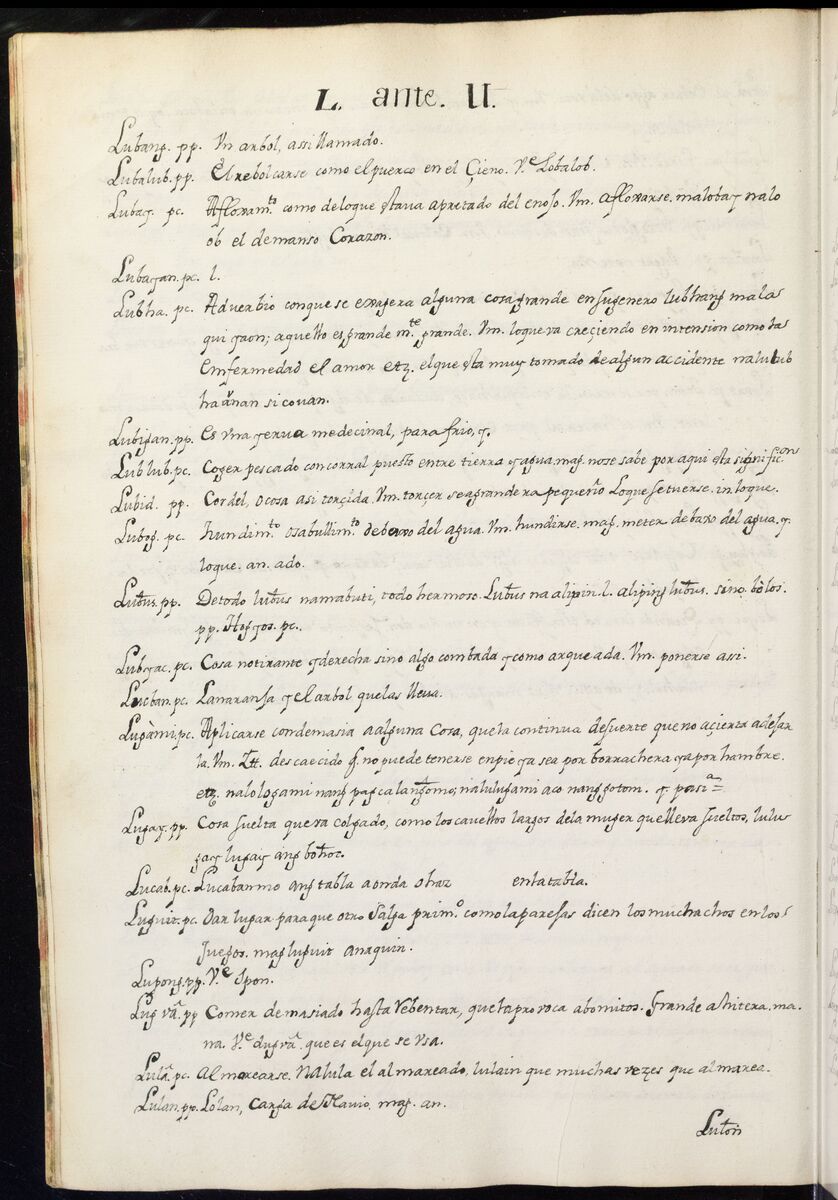 L. ante. U.
Lubang. pp. Vn arbol, assi llamado.
Lubalub. pp. El rebolcarse como el puerco en el Çieno. Ve Lobalob.
Lubag. pc. Afloxamto como deloque estava apretado del enojo. Vm. afloxarse. malobag nalo
ob el demanso Corazon.
Lubagan. pc. l.
Lubha. pc. Aduerbio conque se exagera alguna cosa grande ensugenero lubhang mala
qui yaon; aquello es grande mte grande. Vm. loque va creçiendo en intension como las
enfermedad el amor etz. elque esta muy tomado de algun accidente nalulub
ha anan si couan.
Lubigan. pp. Es vna yerua medecinal, para frio, y.
Lublub. pc. Coger pescado con corral puesto entre tierra y agua. mag. nose sabe por aqui esta significon
Lubid. pp. Cordel, o cosa asi torçida. Vm. torçer sea grande ra pequeño Loque setuerse. in. loque.
Lubog. pc. hundimto osabullimto debaxo del agua. Vm. hundirse. mag. meter debaxo del agua. y.
loque. an. ado.
Lubus. pp. Detodo lubus namabuti, todo hermoso. Lubus na alipin. l. aliping lubus. sino. bòlos.
pp. Hogos. pc.
Lubyac. pc. Cosa notirante y derecha sino algo combada y como arqueada. Vm. ponerse assi.
Lucban. pc. Lanaranja y el arbol quelas lleua.
Lugàmi. pc. Aplicarse condemasia aalguna cosa, quela continua desuerte que no açierta adejar
la. Vm. Itt. descaecido q. no puede tenerse enpie ya sea por borrachera ya por hambre.
etz. nalologami nang pagcalangomo; nalulugami aco nang gotom. y. pasia =
Lugay. pp. Cosa suelta que va colgado, como los cauellos largos dela muger que lleva sueltos, lulu
gay lugay ang bohoc.
Lucab. pc. Lucabanmo ang tabla aonda otraz entatabla.
Luguit. pc. Dar lugar para que otro salga primo como laparejas dicen los muchachos en los
Juegos. mag luguit anaquin.
Lupong. pp. Ve Ipon.
Lug va. pp Comer demasiado hasta Rebentar, quelaprovoca abomitos. grande ahitera. ma.
na. Ve dugva. que es elque se vsa.
Lula. pc. almorearse. Nalula el almareado, lulain que muchas vezes que almarea.
Lulan. pp. Lolan, Carga de Navio. mag. an.
Luton